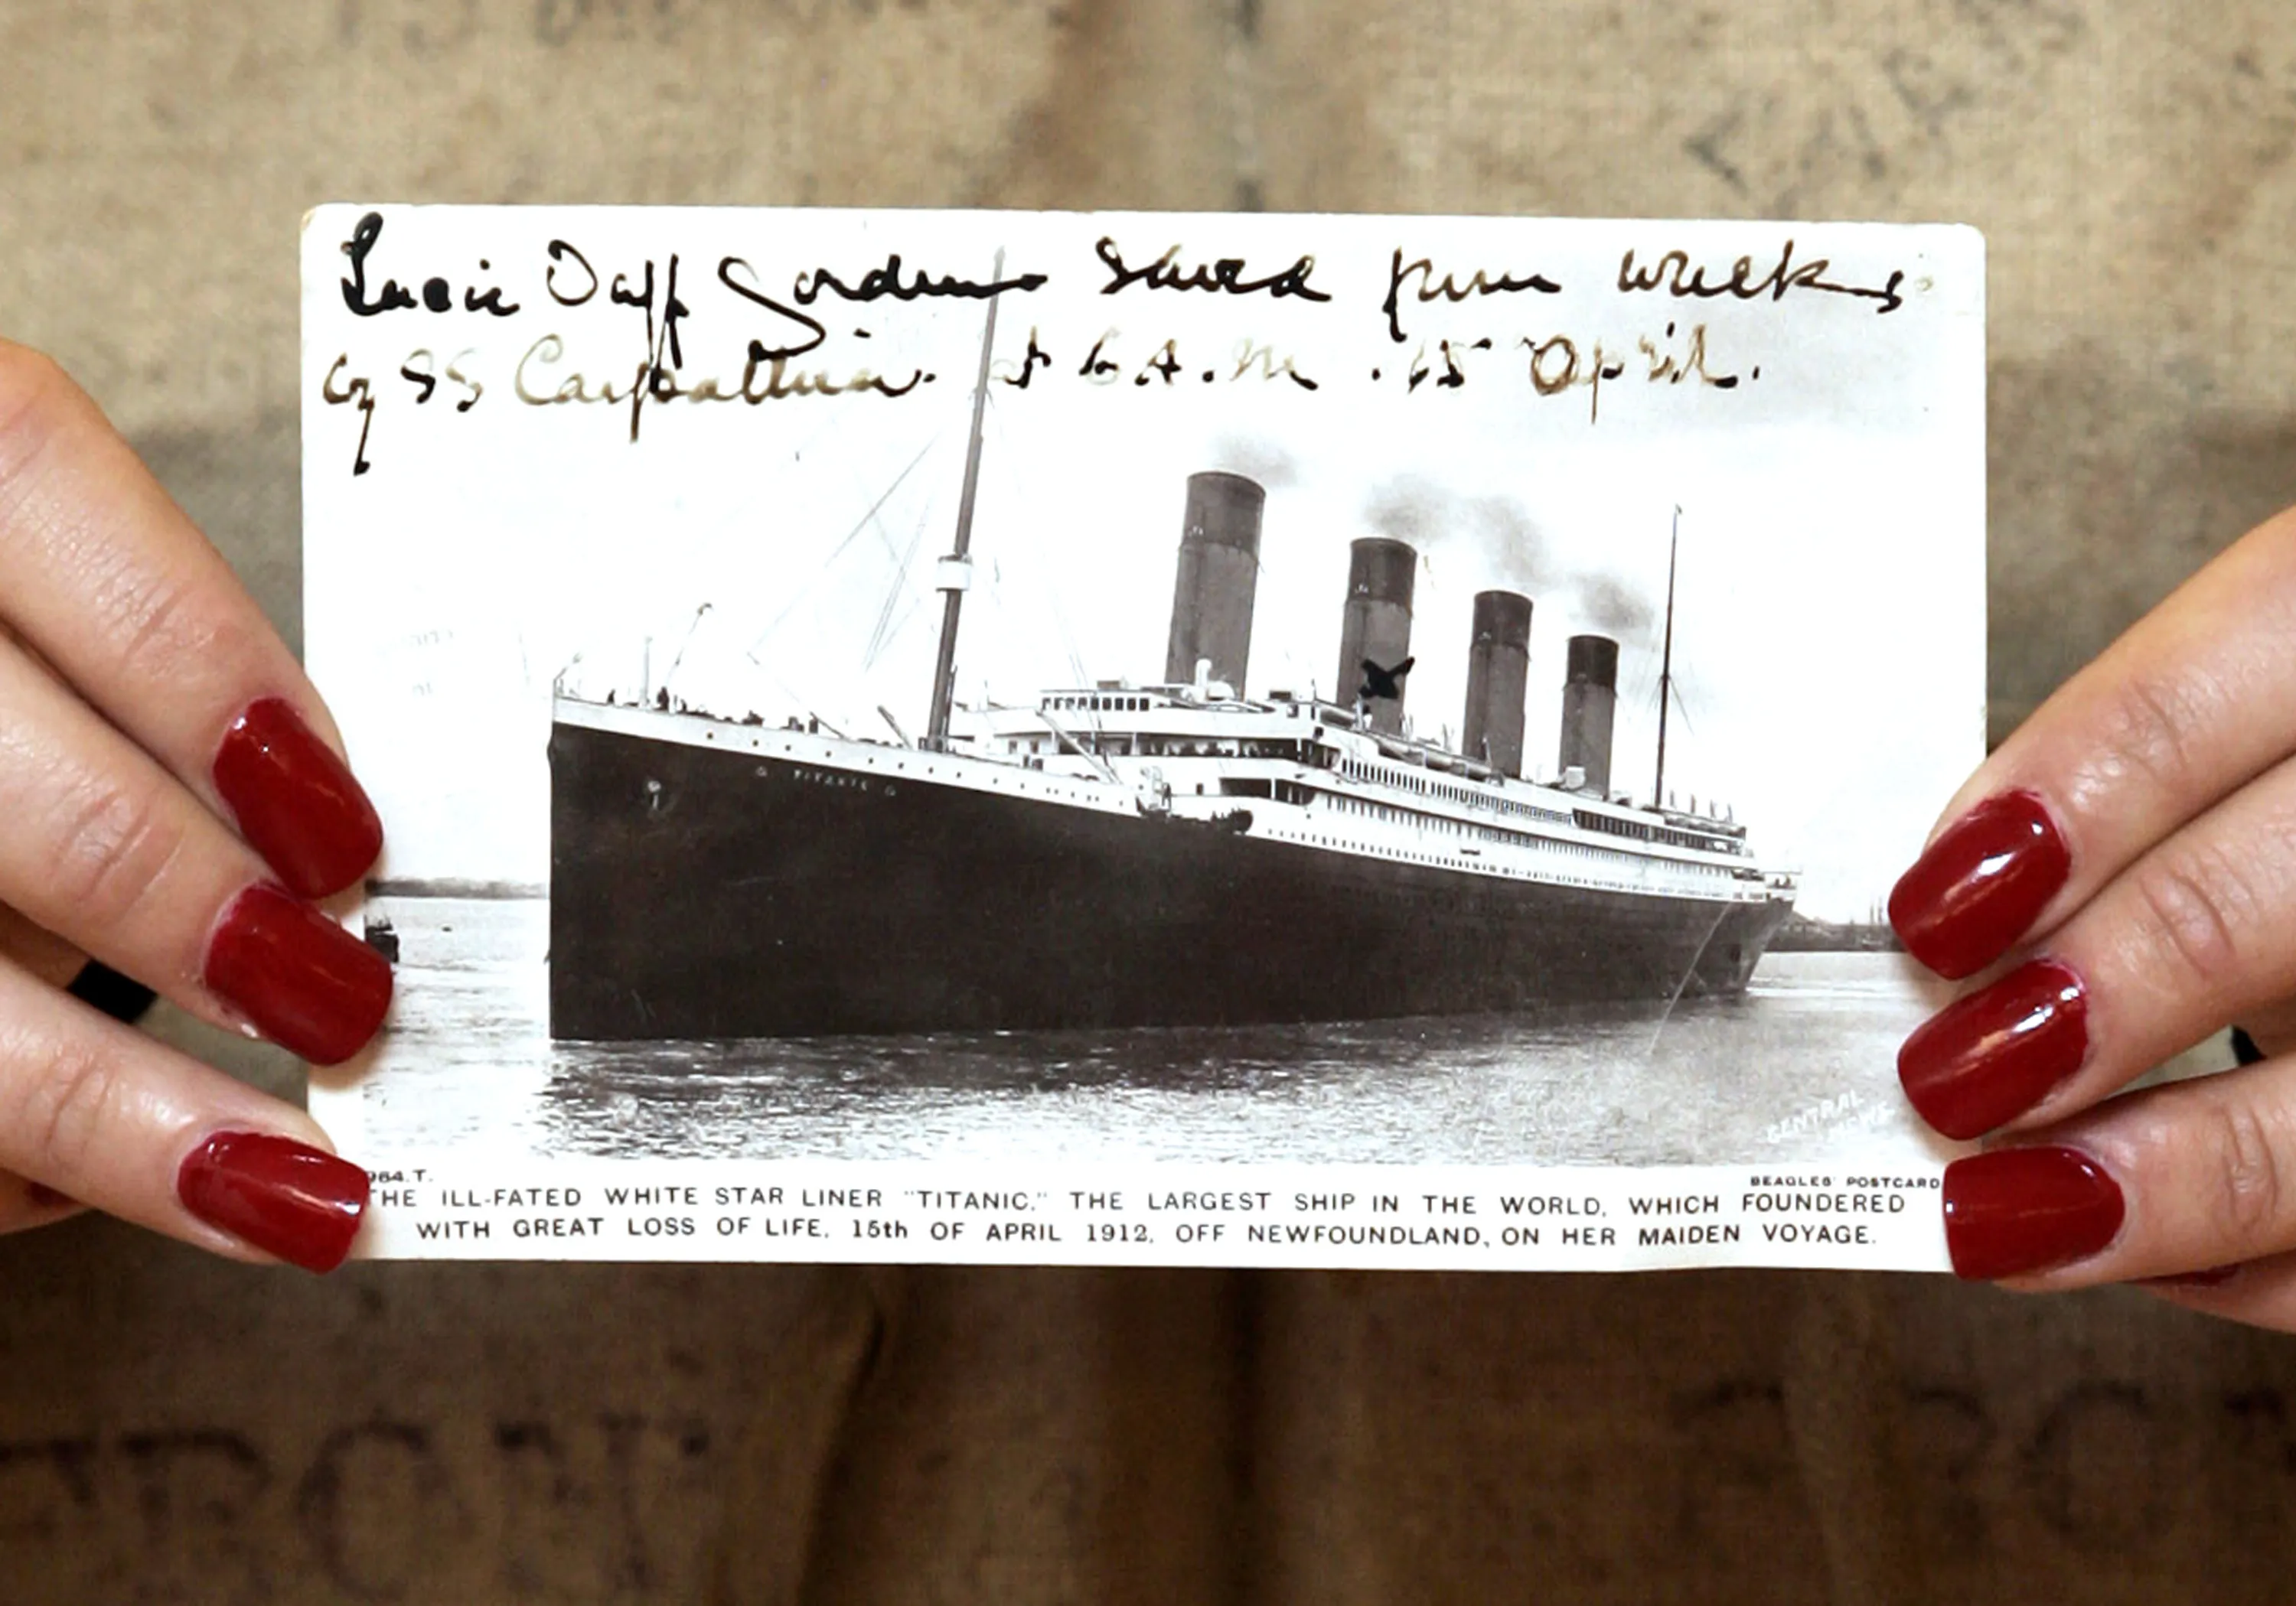 Lucie Duff Gordon saved from wreck
by SS Carpathia. at 6 A.M. 15 April.
TITANIC
CENTRAL
NEWS.
964.T.
BEAGLES' POSTCARD
THE ILL-FATED WHITE STAR LINER "TITANIC," THE LARGEST SHIP IN THE WORLD, WHICH FOUNDERED
WITH GREAT LOSS OF LIFE, 15th OF APRIL 1912, OFF NEWFOUNDLAND, ON HER MAIDEN VOYAGE.